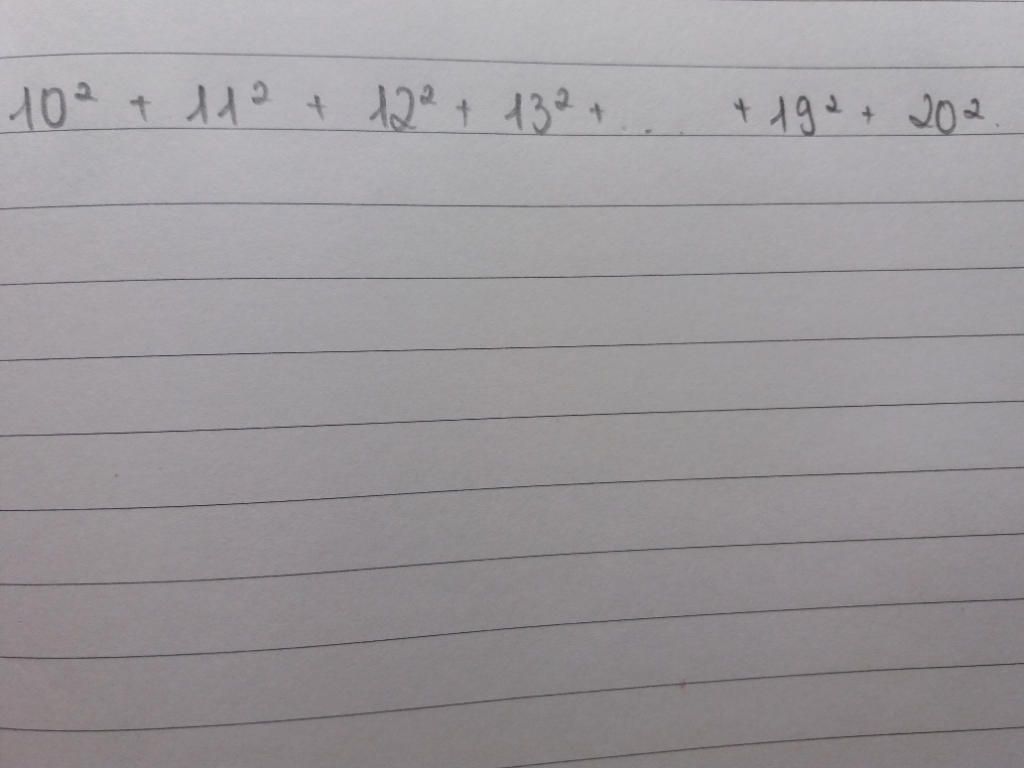 10² + 11² + 12² + 13² + .... + 19² + 20².